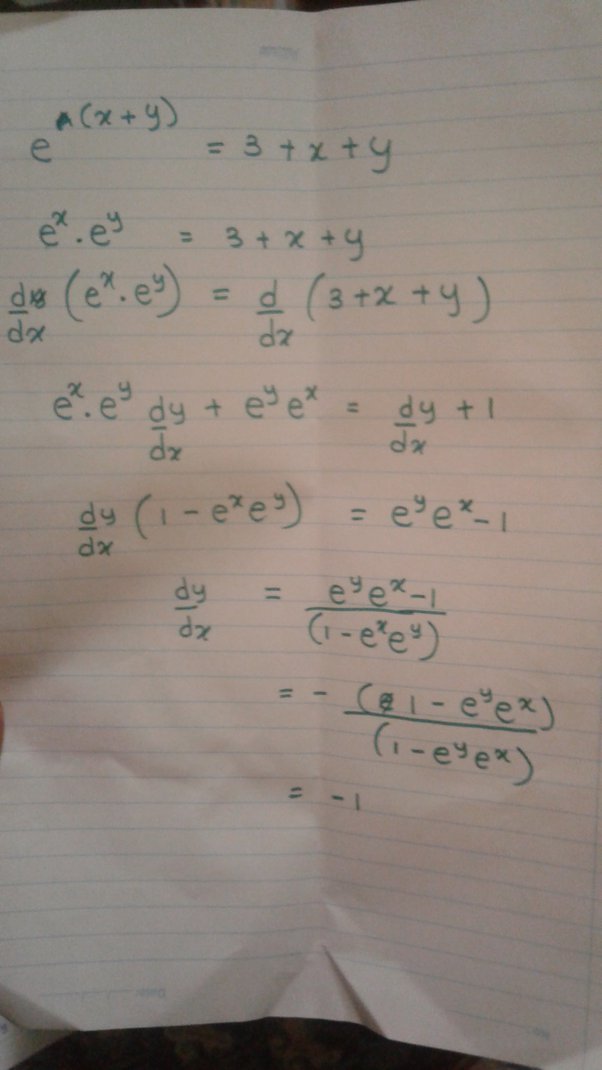 e^(x+y) = 3 + x + y
e^x . e^y = 3 + x + y
d/dx (e^x . e^y) = d/dx (3 + x + y)
e^x . e^y dy/dx + e^y e^x = dy/dx + 1
dy/dx (1 - e^x e^y) = e^y e^x - 1
dy/dx = e^y e^x - 1 / (1 - e^x e^y)
= - (1 - e^y e^x) / (1 - e^y e^x)
= -1